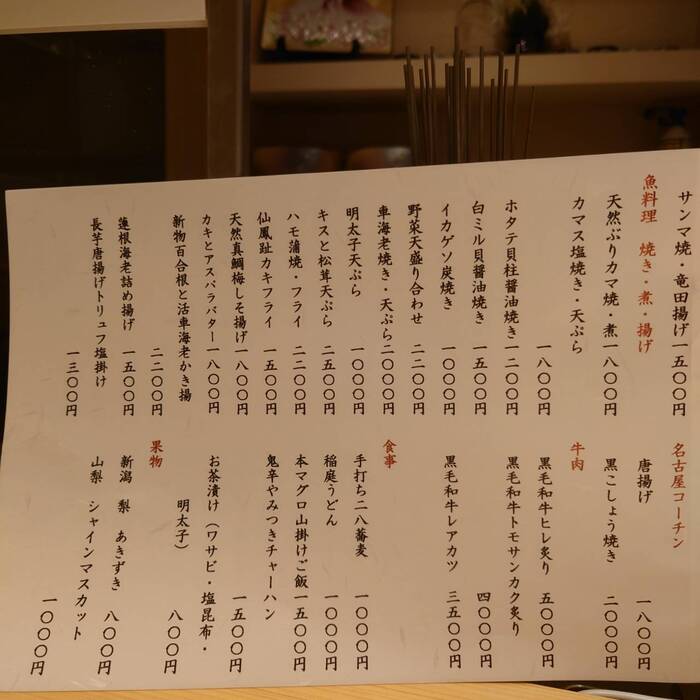 サンマ焼・竜田揚げ一五〇〇円
魚料理　焼き・煮・揚げ
天然ぶりカマ焼・煮一八〇〇円
カマス塩焼き・天ぷら
一八〇〇円
ホタテ貝柱醤油焼き一二〇〇円
白ミル貝醤油焼き　一五〇〇円
イカゲソ炭焼き　一〇〇〇円
野菜天盛り合わせ　二二〇〇円
車海老焼き・天ぷら二〇〇〇円
明太子天ぷら　一〇〇〇円
キスと松茸天ぷら　二五〇〇円
ハモ蒲焼・フライ　二二〇〇円
仙鳳趾カキフライ　一五〇〇円
天然真鯛梅しそ揚げ一八〇〇円
カキとアスパラバター一八〇〇円
新物百合根と活車海老かき揚
二二〇〇円
蓮根海老詰め揚げ　一五〇〇円
長芋唐揚げトリュフ塩掛け
一三〇〇円
名古屋コーチン
唐揚げ　一八〇〇円
黒こしょう焼き　二〇〇〇円
牛肉
黒毛和牛ヒレ炙り　五〇〇〇円
黒毛和牛トモサンカク炙り
四〇〇〇円
黒毛和牛レアカツ　三五〇〇円
食事
手打ち二八蕎麦　一〇〇〇円
稲庭うどん　一〇〇〇円
本マグロ山掛けご飯一五〇〇円
鬼辛やみつきチャーハン
一五〇〇円
お茶漬け（ワサビ・塩昆布・
明太子）　八〇〇円
果物
新潟　梨　あきずき　八〇〇円
山梨　シャインマスカット
一〇〇〇円